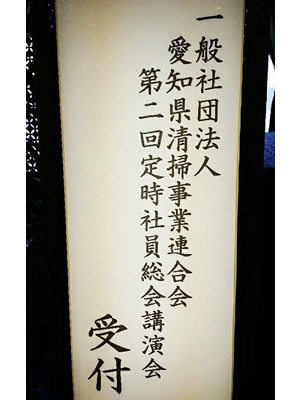 一般社団法人
愛知県清掃事業連合会
第二回定時社員総会講演会
受付